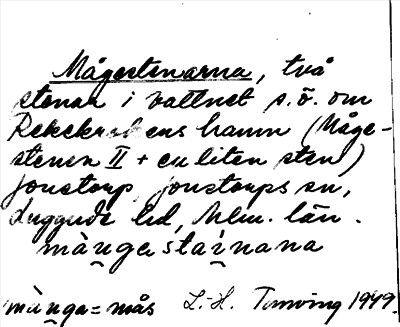 Mågestenarna, två
stenar i vattnet s.ö. om
hamn (Måge-
stenen II + en liten sten)
Jonstorp, Jonstorps sn,
Luggude hd, Mlm. län.
många stäinana
många = mås L.-H. 1949.